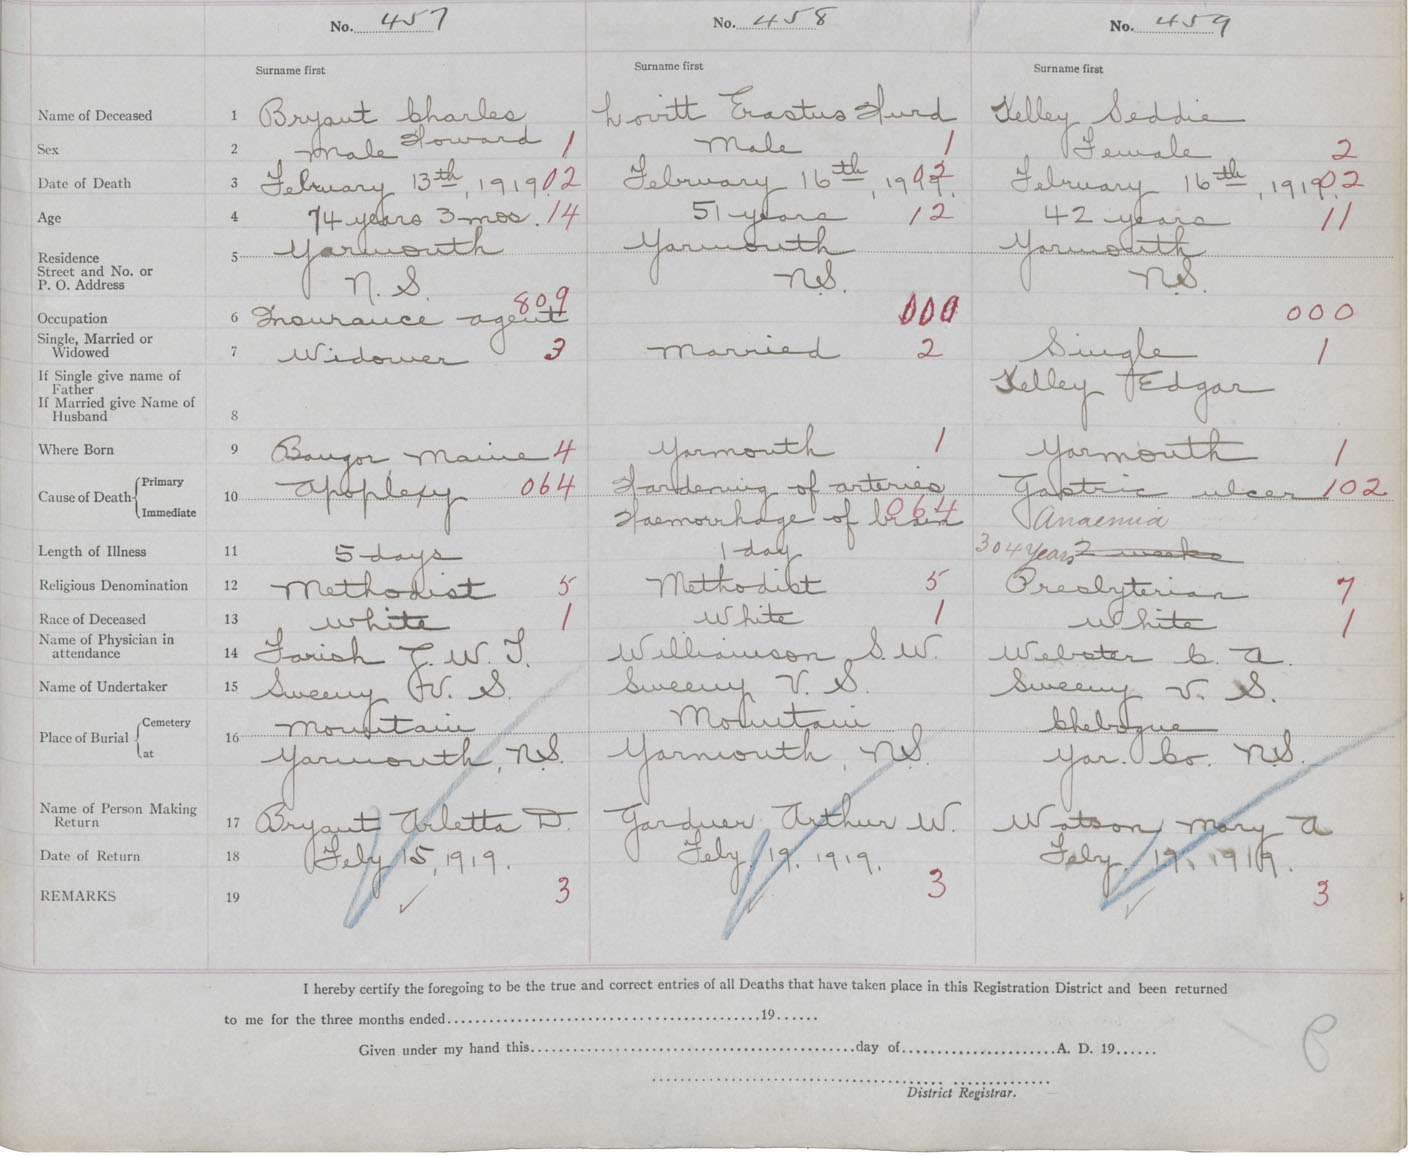 No. 457 No. 458 No. 459
Surname first Surname first Surname first
Name of Deceased 1 Bryant Charles Lovitt Erastus Hurd Kelley Seddie
Howard
Sex 2 Male 1 Male 1 Female 2
Date of Death 3 February 13th, 1919. 02 February 16th, 1919. 02 February 16th, 1919. 02
Age 4 74 years 3 mos. 14 51 years 12 42 years 11
Residence 5 Yarmouth Yarmouth Yarmouth
Street and No. or
P. O. Address N. S. N.S. N.S.
809
Occupation 6 Insurance agent 000 000
Single, Married or
Widowed 7 Widower 3 Married 2 Single 1
If Single give name of
Father Kelley Edgar
If Married give Name of
Husband 8
Where Born 9 Bangor Maine 4 Yarmouth 1 Yarmouth 1
Cause of Death Primary 10 Apoplexy 064 Hardening of arteries Gastric ulcer 102
Immediate Haemorrhage of brain 064 Anaemia
Length of Illness 11 5 days 1 day 3 or 4 years 2 weeks
Religious Denomination 12 Methodist 5 Methodist 5 Presbyterian 7
Race of Deceased 13 White 1 White 1 White 1
Name of Physician in
attendance 14 Farish G. W. T. Williamson S. W. Webster C. A.
Name of Undertaker 15 Sweeny V. S. Sweeny V. S. Sweeny V. S.
Place of Burial Cemetery 16 Mountain Mountain Chebogue
at Yarmouth, N.S. Yarmouth, N.S. Yar. Co. N.S.
Name of Person Making
Return 17 Bryant Arletta D. Gardner Arthur W. Watson Mary A
Date of Return 18 Feby 15, 1919. Feby. 19. 1919. Feby. 19. 1919.
REMARKS 19 3 3 3
I hereby certify the foregoing to be the true and correct entries of all Deaths that have taken place in this Registration District and been returned
to me for the three months ended 19
Given under my hand this day of A. D. 19
District Registrar.